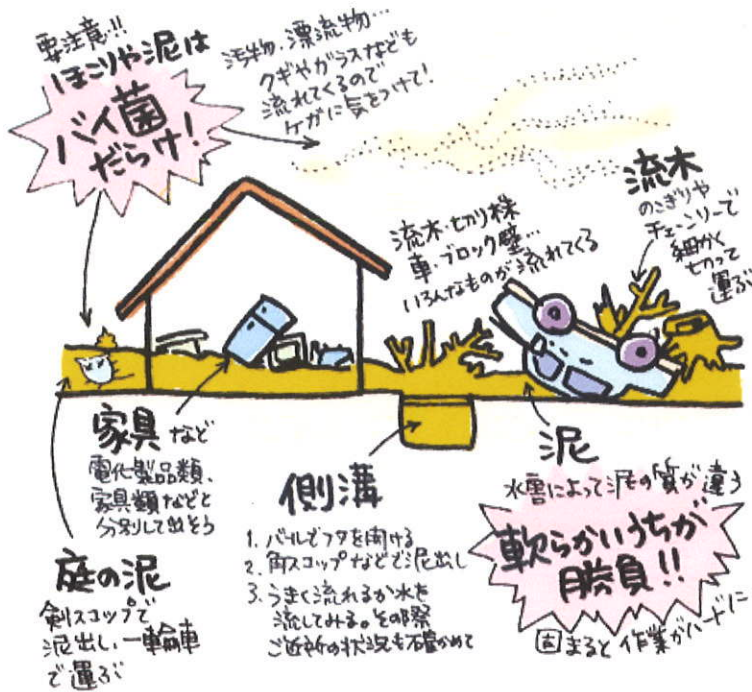 要注意!!
ほこりや泥は
バイ菌
だらけ!
汚物、漂流物…
クギやガラスなども
流れてくるので
ケガに気をつけて!
流木・切り株
車・ブロック壁…
いろんなものが流れてくる
流木
のこぎりや
チェーンソーで
細かく
切って
運ぶ
家具など
電化製品類、
家具類などと
分別して出そう
庭の泥
剣スコップで
泥出し、一輪車
で運ぶ
側溝
1. バールでフタを開ける
2. 角スコップなどで泥出し
3. うまく流れるか水を
流してみる。その際
ご近所の状況も確かめて
泥
水害によって泥の質が違う
軟らかいうちが
勝負!!
固まると作業がハードに